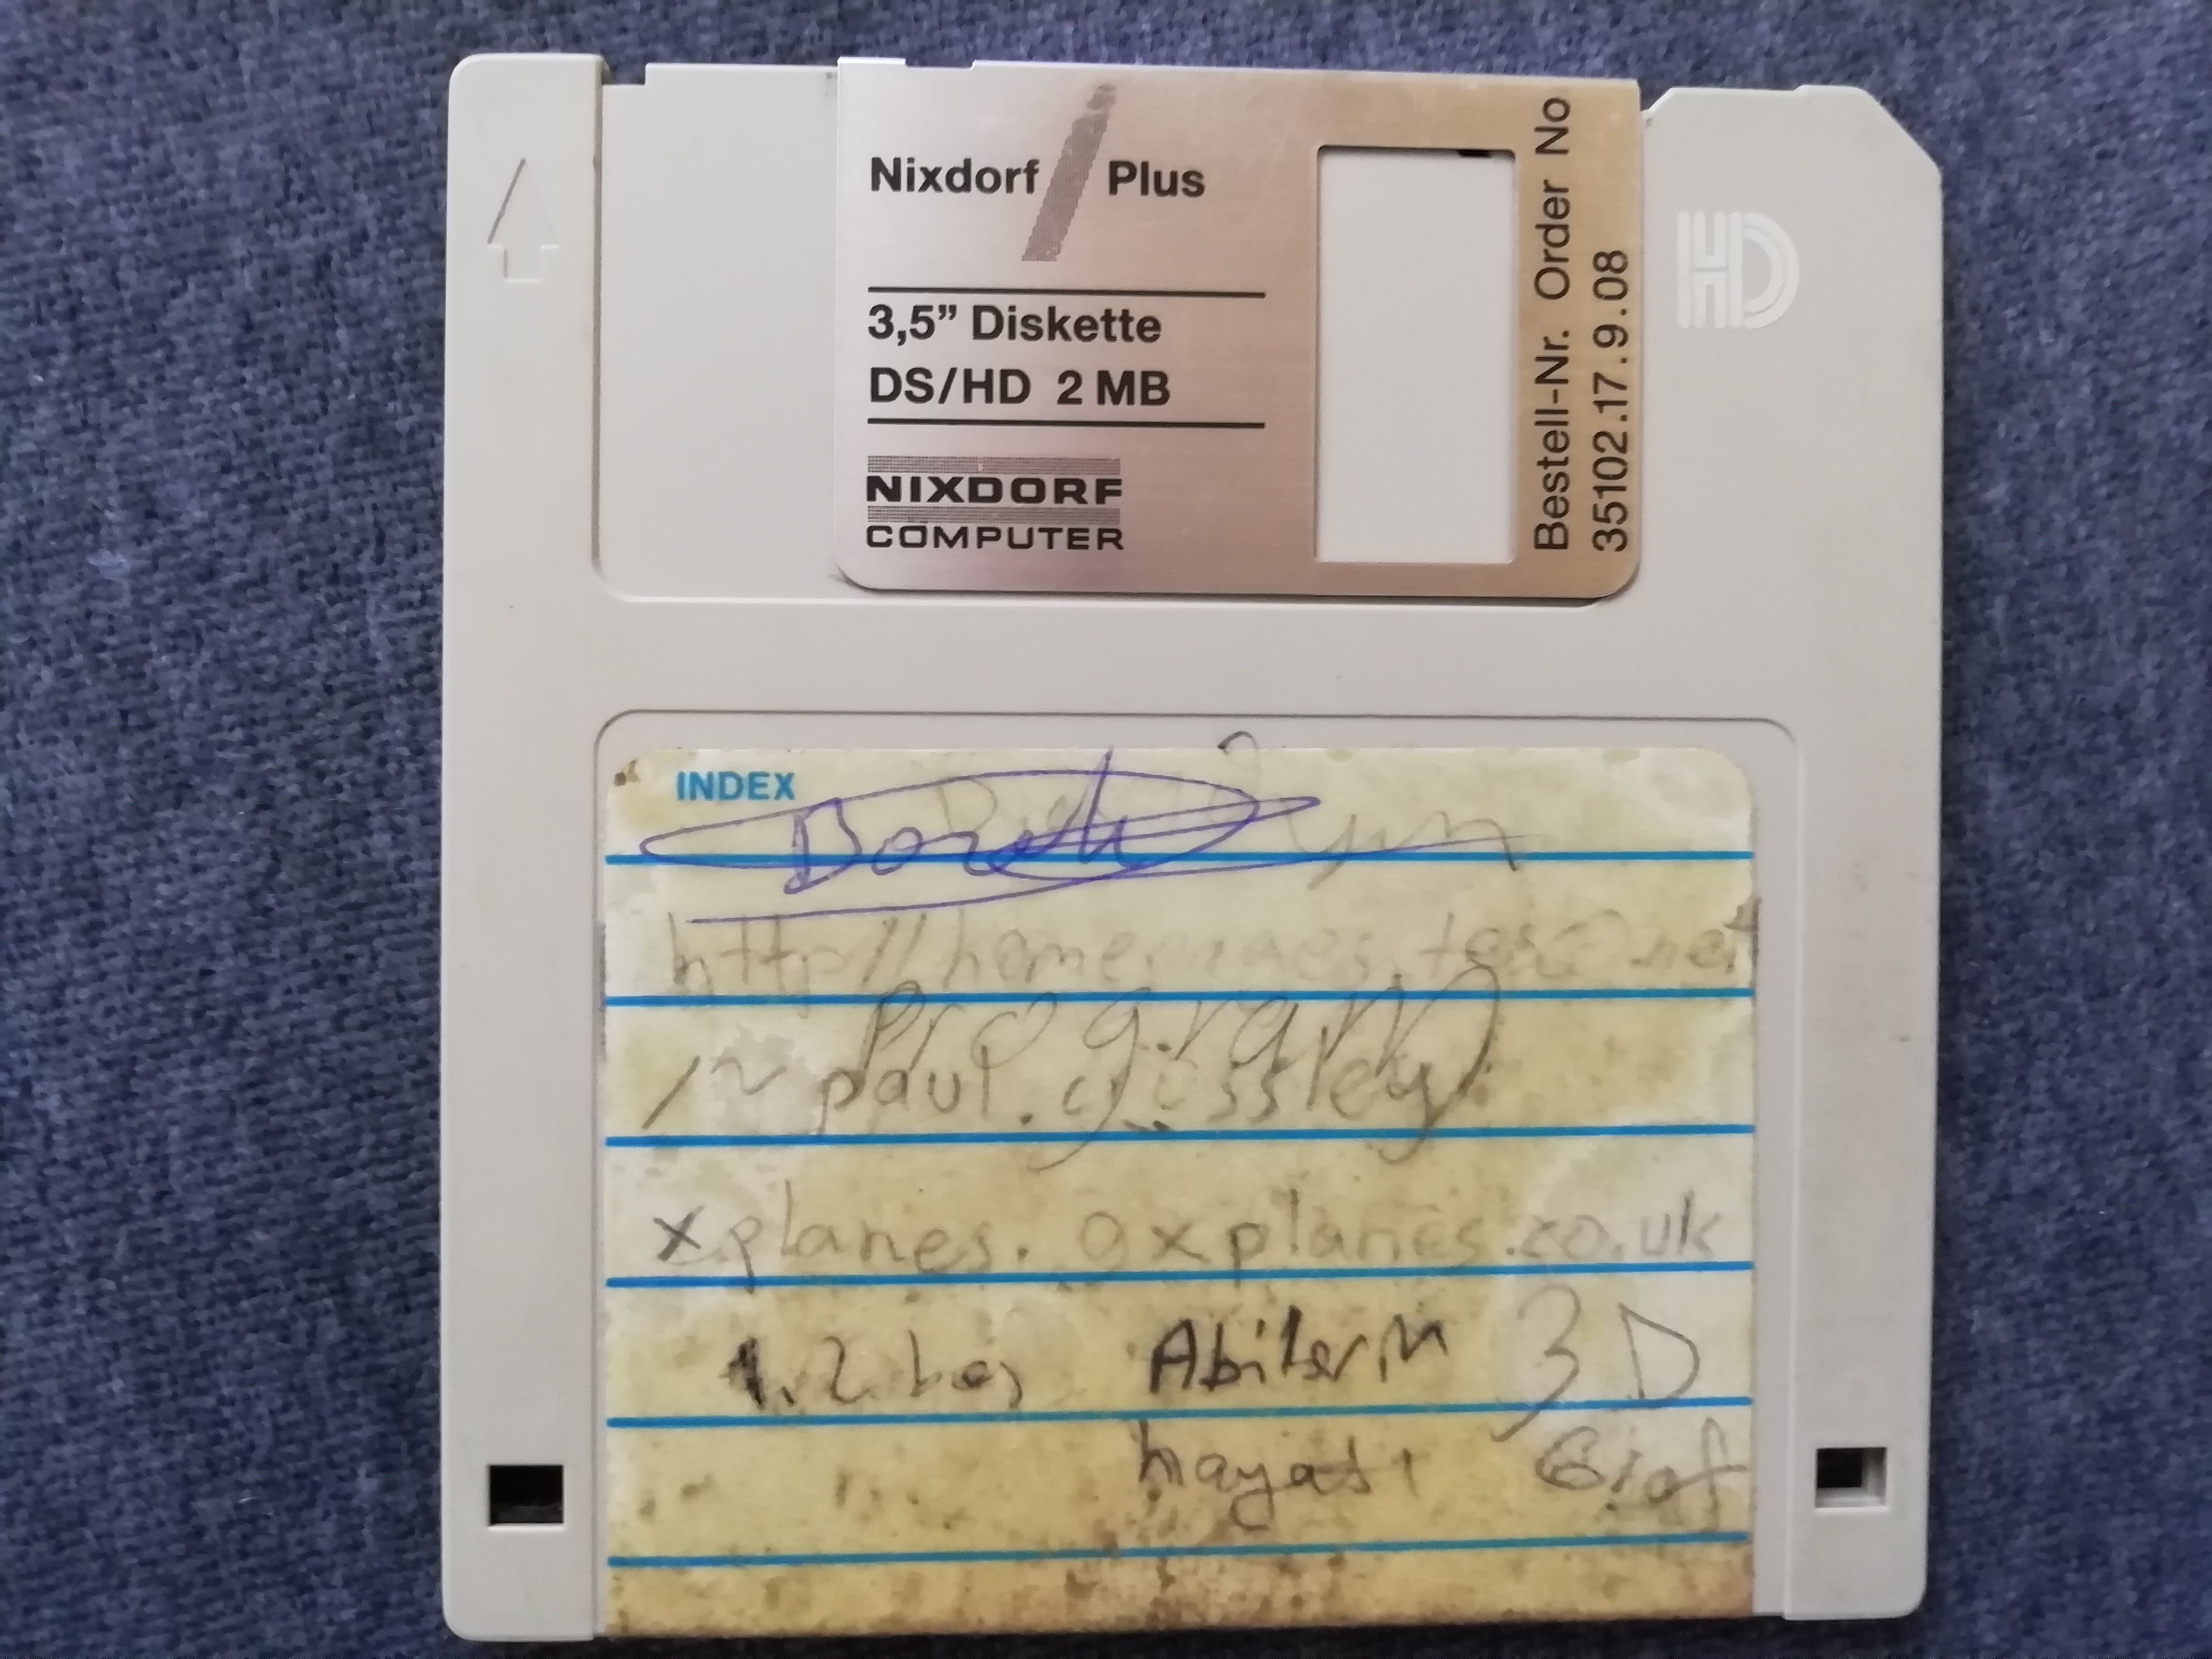 Nixdorf / Plus
3,5” Diskette
DS/HD 2 MB
NIXDORF
COMPUTER
Bestell-Nr. Order No
35102.17.9.08
HD
INDEX
Bozuk
http//homepages.
Program
/~paul.
xplanes.gxplanes.co.uk
1.2 Abilerin 3D
hayatı